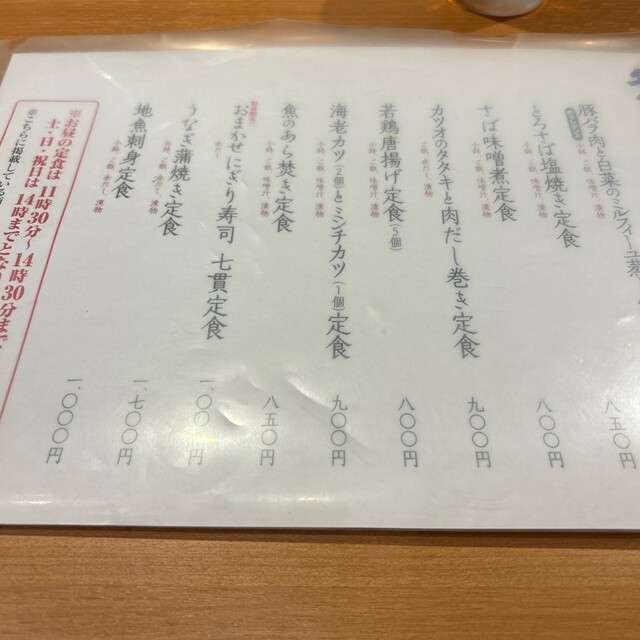 豚バラ肉と白菜のミルフィーユ
八五〇円
とろさば塩焼き定食
小鉢 ご飯 味噌汁 漬物
八〇〇円
さば味噌煮定食
小鉢 ご飯 味噌汁 漬物
九〇〇円
カツオのタタキと肉だし巻き定食
小鉢 ご飯 赤だし 漬物
八〇〇円
若鶏唐揚げ定食(5個)
小鉢 ご飯 味噌汁 漬物
九〇〇円
海老カツ(2個)とミンチカツ(1個)定食
小鉢 ご飯 味噌汁 漬物
八五〇円
魚のあら焚き定食
小鉢 ご飯 味噌汁 漬物
一、〇〇円
おまかせにぎり寿司 七貫定食
赤だし
一、七〇〇円
うなぎ蒲焼き定食
小鉢 ご飯 赤だし 漬物
一、〇〇〇円
地魚刺身定食
小鉢 ご飯 赤だし 漬物
※お昼の定食は 11時30分〜14時30分まで
土・日・祝日は 14時まで
※こちらに掲載している